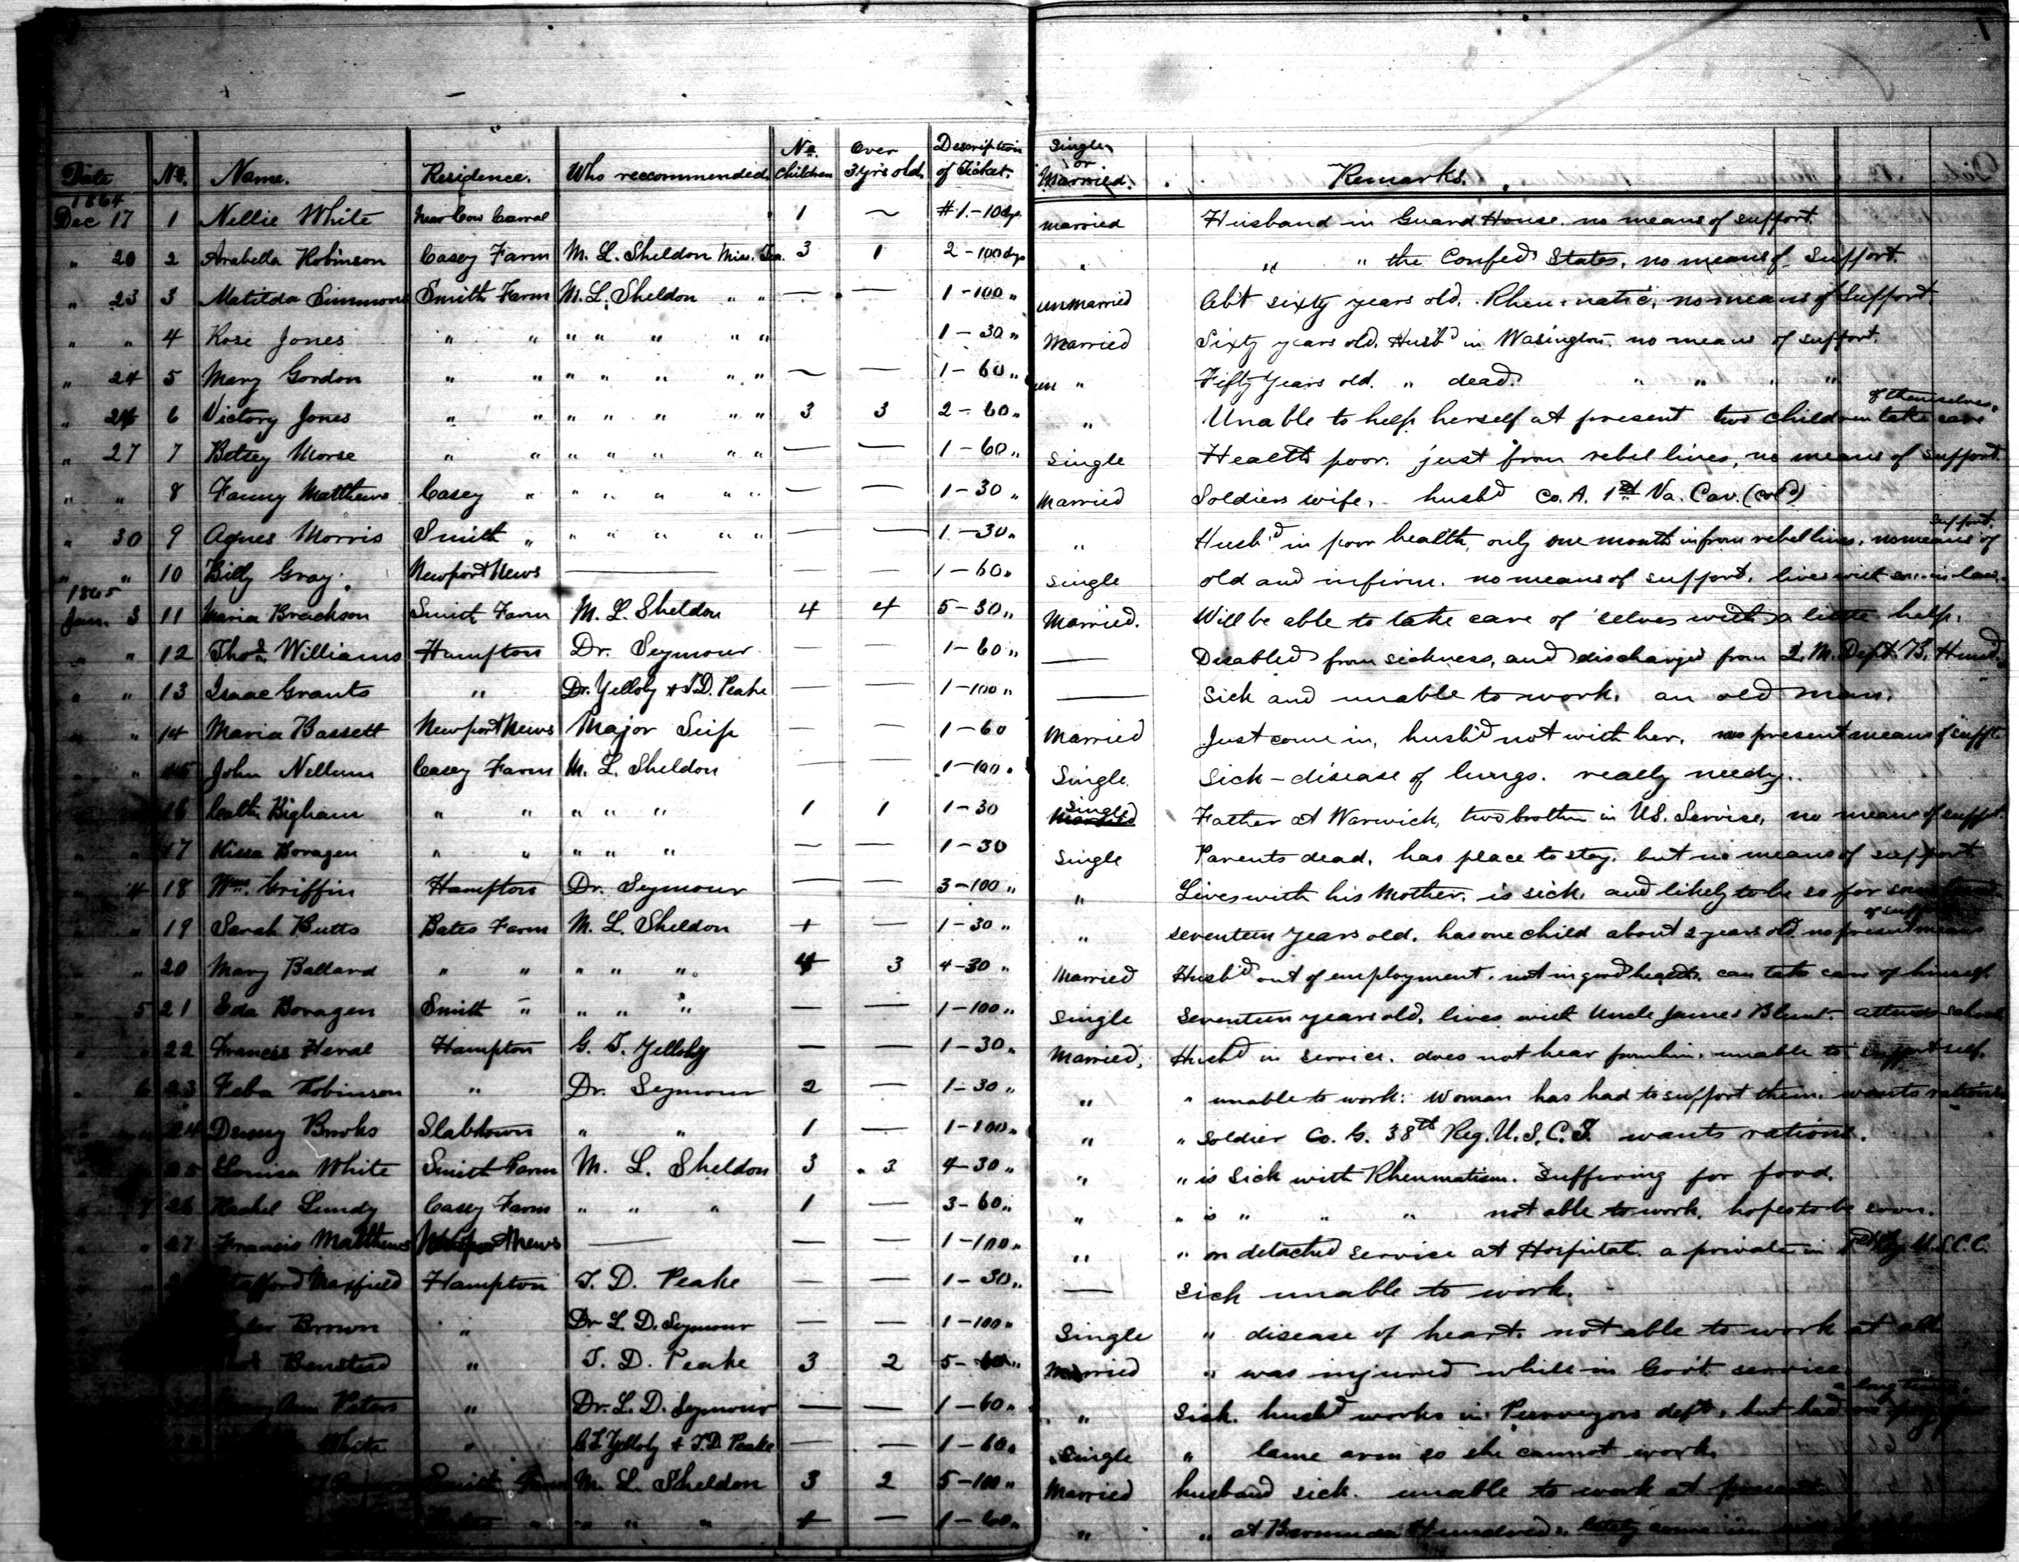 Date No. Name. Residence. Who reccommended. No. Children Over 3 yrs old. Description of Ticket. Single or Married. Remarks.
1864
Dec 17 1 Nellie White Near Cow Carral 1 ~ #1-10 dys married Husband in Guard House. no means of support.
" 20 2 Arabella Robinson Casey Farm M. L. Sheldon Miss. Tea. 3 1 2-100 dys " " " the Confed States, no means of support.
" 23 3 Matilda Simmons Smith Farm M. L. Sheldon " " — — 1-100 " unmarried Abt sixty years old. Rheumatic, no means of Support.
" " 4 Rose Jones " " " " " " " 1-30 " Married Sixty years old. Husbd in Wasington, no means of support.
" 24 5 Mary Gordon " " " " " " " ~ — 1-60 " un " Fifty years old. " dead. " " " "
" 24 6 Victory Jones " " " " " " " 3 3 2-60 " " Unable to help herself at present two children take care of themselves.
" 27 7 Betsey Morse " " " " " " " — — 1-60 " Single Health poor. just from rebel lines, no means of support.
" " 8 Fanny Matthews Casey " " " " " " — — 1-30 " Married Soldiers wife, husbd Co. A. 1st Va. Cav. (cold)
" 30 9 Agnes Morris Smith " " " " " " — — 1-30 " " Husbd in poor health, only one month in from rebel lines, no means of support.
" " 10 Billy Gray. Newport News — — — 1-60 " Single old and infirm. no means of support. lives with son-in-law.
1865
Jan. 3 11 Maria Brackson Smith Farm M. L. Sheldon 4 4 5-30 " Married. Will be able to take care of 'selves with a little help.
" " 12 Thos. Williams Hampton Dr. Seymour — — 1-60 " — Disabled from sickness, and discharged from Q. M. Dept. B. Hund.
" " 13 Isaac Grants " Dr. Yelloly & T. D. Peake — — 1-100 " — Sick and unable to work. an old man.
" " 14 Maria Bassett Newport News Major Seip — — 1-60 Married Just come in, husbd not with her, no present means of suppt.
" " 15 John Nellum Casey Farm M. L. Sheldon — — 1-100 " Single. Sick - disease of lungs. really needy.
16 Cath. Bigham " " " " " 1 1 1-30 Single Married Father at Warwick, two brothers in U.S. Service, no means of suppt.
" " 17 Kissa Boragen " " " " " — — 1-30 Single Parents dead, has place to stay. but no means of support
" 4 18 Wm. Griffin Hampton Dr. Seymour — — 3-100 " " Lives with his Mother, is sick, and likely to be so for
" 19 Sarah Butts Bates Farm M. L. Sheldon + — 1-30 " " seventeen years old. has one child about 2 years old no present means of
" 20 Mary Ballard " " " " " 4 3 4-30 " Married Husbd out of employment. not in good health. can take care of himself.
" 5 21 Eda Boragen Smith " " " " — — 1-100 " Single Seventeen years old, lives with Uncle James Blunt. attends school
" 22 Frances Heral Hampton G. T. Yelloly — — 1-30 " Married. Husbd in service. does not hear from him. unable to support self.
" 6 23 Feba Robinson " Dr. Seymour 2 — 1-30 " " " unable to work: Woman has had to support them. wants rations
24 Denny Brooks Slabtown " " 1 — 1-100 " " " Soldier Co. G. 38th Reg. U.S.C.T. wants rations.
25 Louisa White Smith Farm M. L. Sheldon 3 3 4-30 " " " is Sick with Rheumatism. Suffering for food.
7 26 Rachel Lundy Casey Farm " " " 1 — 3-60 " " " is " " " not able to work, hopes to be soon.
" 27 Francis Matthews Newport News — — — 1-100 " " " on detached service at Hospital. a private in U.S.C.C.
Stafford Maxfield Hampton T. D. Peake — — 1-30 " — Sick unable to work.
Brown " Dr L. D. Seymour — — 1-100 " Single " disease of heart. not able to work at all
" T. D. Peake 3 2 5-60 " Married " was injured while in Gov't service
Ann Peters " Dr. L. D. Seymour — — 1-60 " " Sick. husbd works in Purveyors dept, but had no a long time.
White " Yelloly & T. D. Peake — — 1-60 " Single " lame arm so she cannot work.
Smith Farm M. L. Sheldon 3 2 5-100 " Married husband sick. unable to work at present
" " " " + — 1-60 " " " at Bermuda Hundred. lately come in